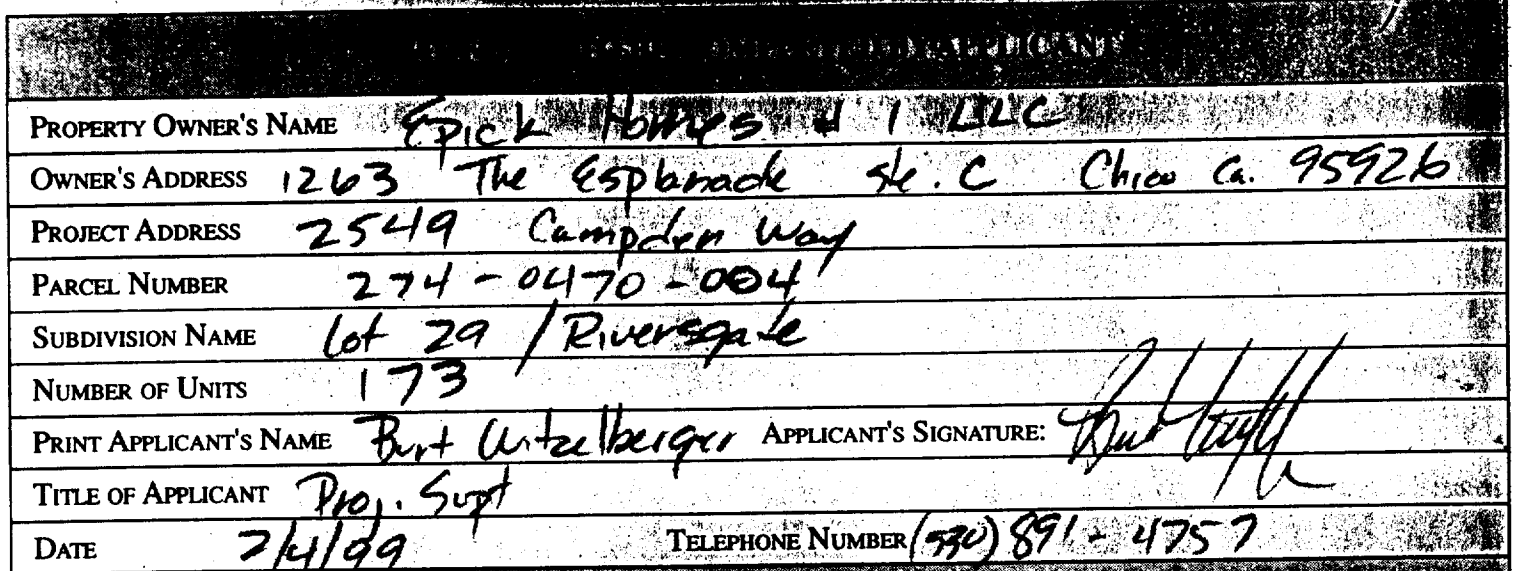 APPLICANT
PROPERTY OWNER'S NAME Epick Homes # 1 LLC
OWNER'S ADDRESS 1263 The Esplanade ste. C Chico Ca. 95926
PROJECT ADDRESS 2549 Campden Way
PARCEL NUMBER 274-0470-004
SUBDIVISION NAME Lot 29 / Riversgate
NUMBER OF UNITS 173
PRINT APPLICANT'S NAME Burt Witzelberger APPLICANT'S SIGNATURE:
TITLE OF APPLICANT Proj. Supt
DATE 2/4/99 TELEPHONE NUMBER (530) 891-4757